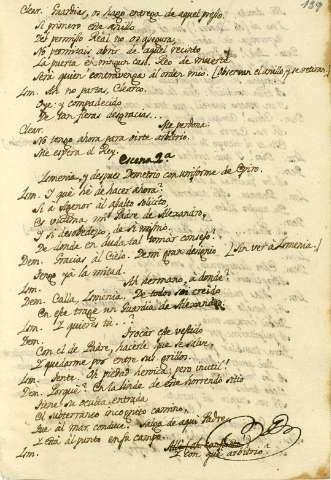 139
Clear. Guardias, os hago entrega de aquel preso.
Si primero este anillo
Del permiso Real no os asegura,
No permitais abrir de aquel recinto
La puerta en ningun caso. Reo de muerte
Será quien contravenga al orden mio. [Observan el anillo, y se retiran.]
Lim. Ah no partas, Clearco.
Oye: y compadecido
De tan fieras desgracias...
Clear. Me perdona.
No tengo ahora para oirte arbitrio.
Me espera el Rey.
Escena 2.ª
Limenia, y despues Demetrio con uniforme de Epiro.
Lim. Y qué he de hacer ahora?
Si a Agenor al asalto solicito,
Es victima mi Padre de Alexandro,
Y si desobedezco, de si mismo.
De donde en duda tal tomar consejo?
Dem. Gracias al Cielo. De mi gran designio [Sin ver a Limenia.]
Tengo ya la mitad.
Lim. Ah hermano, a donde?
Dem. Calla, Limenia. De todos soi creido
En este trage un Guardia de Alexandro.
Lim. Y quieres tu...?
Dem. Trocar este vestido
Con el de Padre, hacerle que se salve,
Y quedarme por entre sus grillos.
Lim. Tente. Oh piedad heroica, pero inutil!
Dem. Porqué?
Lim. En la linde de este horrendo sitio
Tiene su oculta entrada
El subterraneo incognito camino,
Que al mar conduce. Salga de aqui Padre,
Y está al punto en su campo.
Lim. Y con qué arbitrio